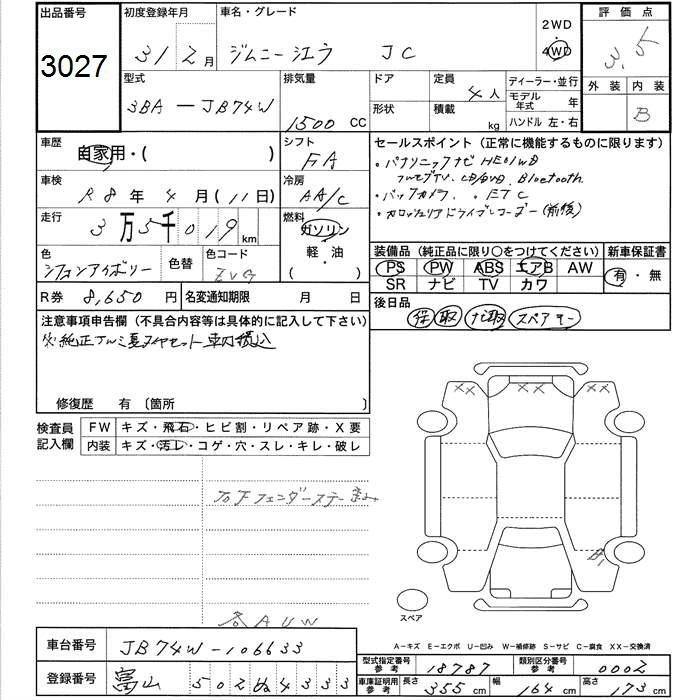 出品番号
3027
初度登録年月
31 / 2 月
車名・グレード
ジムニーシエラ JC
2WD
4WD
評価点
3.5
型式
3BA－JB74W
排気量
1500 CC
ドア
形状
定員
4 人
積載
kg
ディーラー・並行
モデル年式 年
ハンドル 左・右
外装 内装
B
車歴
自家用・( )
シフト
FA
車検
R8 年 4 月 (11 日)
冷房
AA/C
走行
3 万 5 千 019 km
燃料
ガソリン
軽・油
( ・ )
色
シフォンアイボリー
色替
色コード
ZVG
R券 8,650 円
名変通知期限 月 日
セールスポイント（正常に機能するものに限ります）
・パナソニックナビ HE01WD
フルセグTV、CD/DVD、Bluetooth
・バックカメラ ・ETC
・カロッツェリアドライブレコーダー(前後)
装備品（純正品に限り○をつけてください）
新車保証書
PS PW ABS エアB AW
SR ナビ TV カワ
有・無
後日品
保 取 ナビ取 スペアキー
注意事項申告欄（不具合内容等は具体的に記入して下さい）
※純正アルミ夏タイヤセット車内積込
修復歴 有〔箇所 〕
検査員記入欄
FW キズ・飛石・ヒビ割・リペア跡・X要
内装 キズ・汚レ・コゲ・穴・スレ・キレ・破レ
左右Fフェンダーステー
各AUW
XX
XX
XX
B1
スペア
A－キズ E－エクボ U－凹み W－補修跡 S－サビ C－腐食 XX－交換済
車台番号 JB74W－106633
登録番号 富山 502 ぬ 4333
型式指定番号 参考 18787
類別区分番号 参考 0002
車庫証明用 参考 長さ 355 cm 幅 164 cm 高さ 173 cm